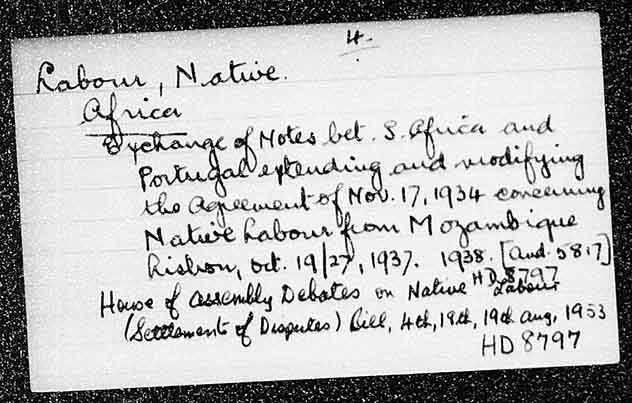 4.
Labour, Native.
Africa
Exchange of Notes bet. S. Africa and
Portugal extending and modifying
the Agreement of Nov. 17, 1934 concerning
Native Labour from Mozambique
Lisbon, Oct. 19/27, 1937. 1938. [Cmd. 5817]
HD 8797
House of Assembly Debates on Native Labour
(Settlement of Disputes) Bill, 4th, 18th, 19th Aug, 1953
HD 8797